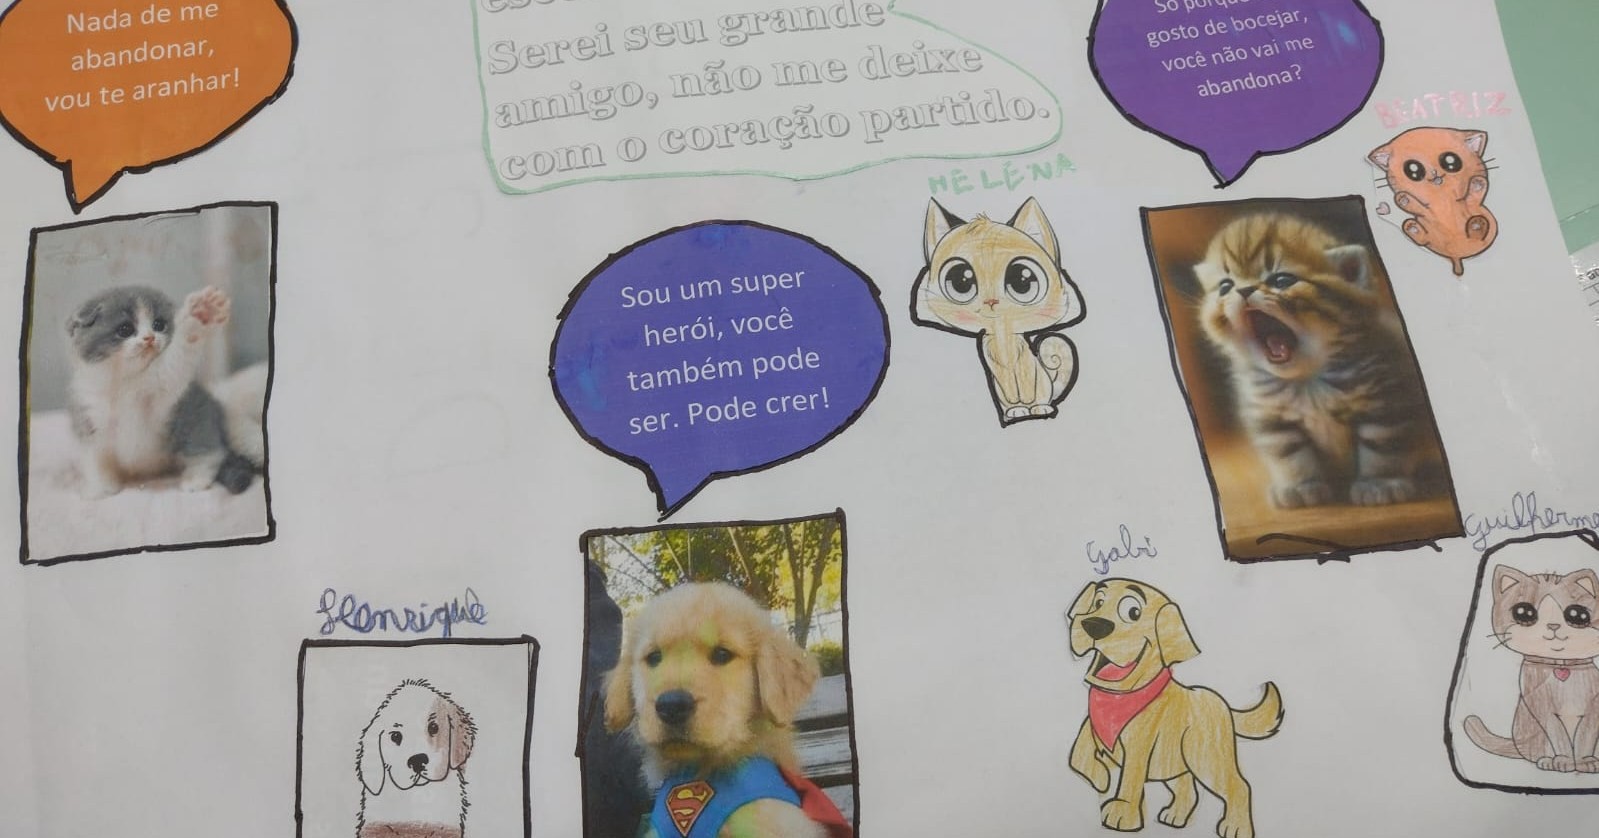 Nada de me
abandonar,
vou te aranhar!
Serei seu grande
amigo, não me deixe
com o coração partido.
Só porque
gosto de bocejar,
você não vai me
abandona?
BEATRIZ
HELENA
Sou um super
herói, você
também pode
ser. Pode crer!
Gabi
Guilherme
Henrique